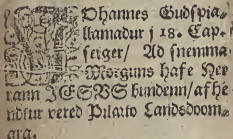 Johannes Gudspia-
llamadur j 18. Cap.
seiger/ Ad snemma
Morguns hafe Her
rann JESVS bundenn/ af he
ndtur vered Pilato Landsdoom-
ara.